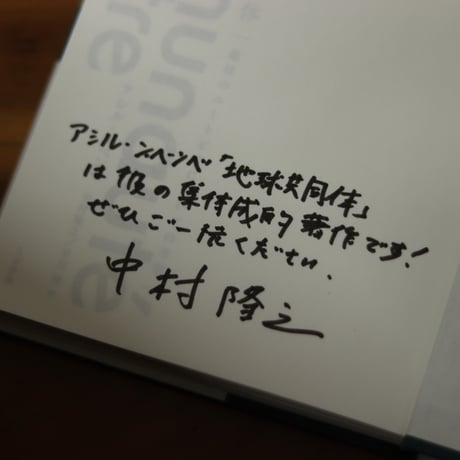 アシル・ンベンベ「地球共同体」
は彼の集大成的著作です！
ぜひご一読ください.
中村隆之